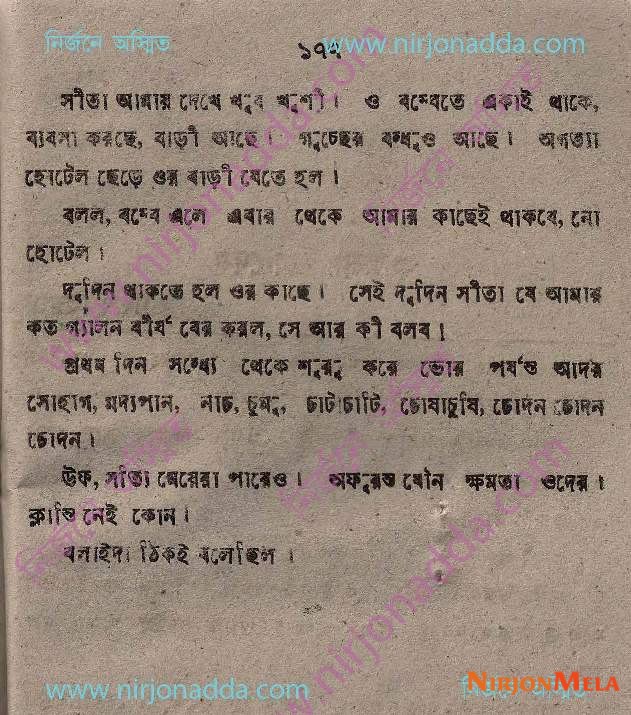 নির্জনে অস্মিত ১৭৭ www.nirjonadda.com
সীতা আমায় দেখে খুব খুশী। ও বম্বেতে একাই থাকে,
ব্যবসা করছে, বাড়ী আছে। গুচ্ছের বন্ধুও আছে। অগত্যা
হোটেল ছেড়ে ওর বাড়ী যেতে হল।
বলল, বম্বে এলে এবার থেকে আমার কাছেই থাকবে, নো
হোটেল।
দুদিন থাকতে হল ওর কাছে। সেই দুদিন সীতা যে আমার
কত গ্যালন বীর্য বের করল, সে আর কী বলব!
প্রথম দিন সন্ধ্যে থেকে শুরু করে ভোর পর্যন্ত আদর
সোহাগ, মদ্যপান, নাচ, চুমু, চাটাচাটি, চোষাচুষি, চোদন চোদন
চোদন।
উফ, সীতা মেয়েরা পারেও। অফুরন্ত যৌন ক্ষমতা ওদের।
ক্লান্তি নেই কোন।
বলাইদা ঠিকই বলেছিল।
www.nirjonadda.com
নির্জনে অস্মিত
www.nirjonadda.com
NIRJONMELA